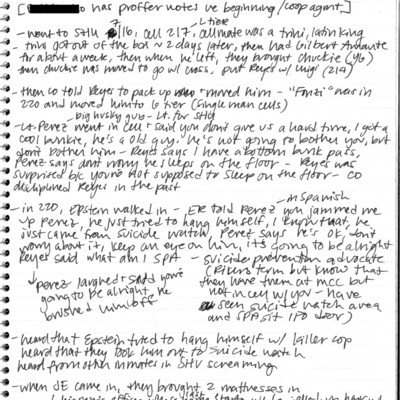 [ has proffer notes re beginning/coop agmt]
7 L tier
- went to SHU /16, cell 217, cellmate was a trini, latin king
- trini got out of the box ~2 days later, then had Gilbert
for about a week, then when he left, they brought chuckie (96)
then chuckie was moved to go w/ cross, put Reyes w/ Luigi (214)
- then CO told Reyes to pack up + moved him - "Fonzi" was in
220 and moved him to G tier (single man cells)
big husky guy - Lt. for SHU
- Lt. Perez went in cell + said you don't give us a hard time, I got a
cool bunkie, he's a old guy. he's not going to bother you, but
don't bother him - Reyes says I have a bottom bunk pass,
Perez says don't worry he sleeps on the floor - Reyes was
surprised b/c you're not supposed to sleep on the floor - CO
disciplined Reyes in the past
- in Spanish
- in 220, Epstein walked in - ER told Perez you jammed me
up Perez, he just tried to hang himself, I know that, he
just came from suicide watch, Perez says he's ok, don't
worry about it, keep an eye on him, it's going to be alright
Reyes said what am I SPA - suicide prevention advocate
(Rikers term but know that
they have them at MCC but
not in cell w/ you - have
seen suicide watch area
and SPA sit i/f/o door)
↓ Perez laughed + said you're
going to be alright, he
brushed him off
- heard that Epstein tried to hang himself w/ killer cop
heard that they took him out to suicide watch
heard from other inmates in SHU screaming
- when JE came in, they brought 2 mattresses in